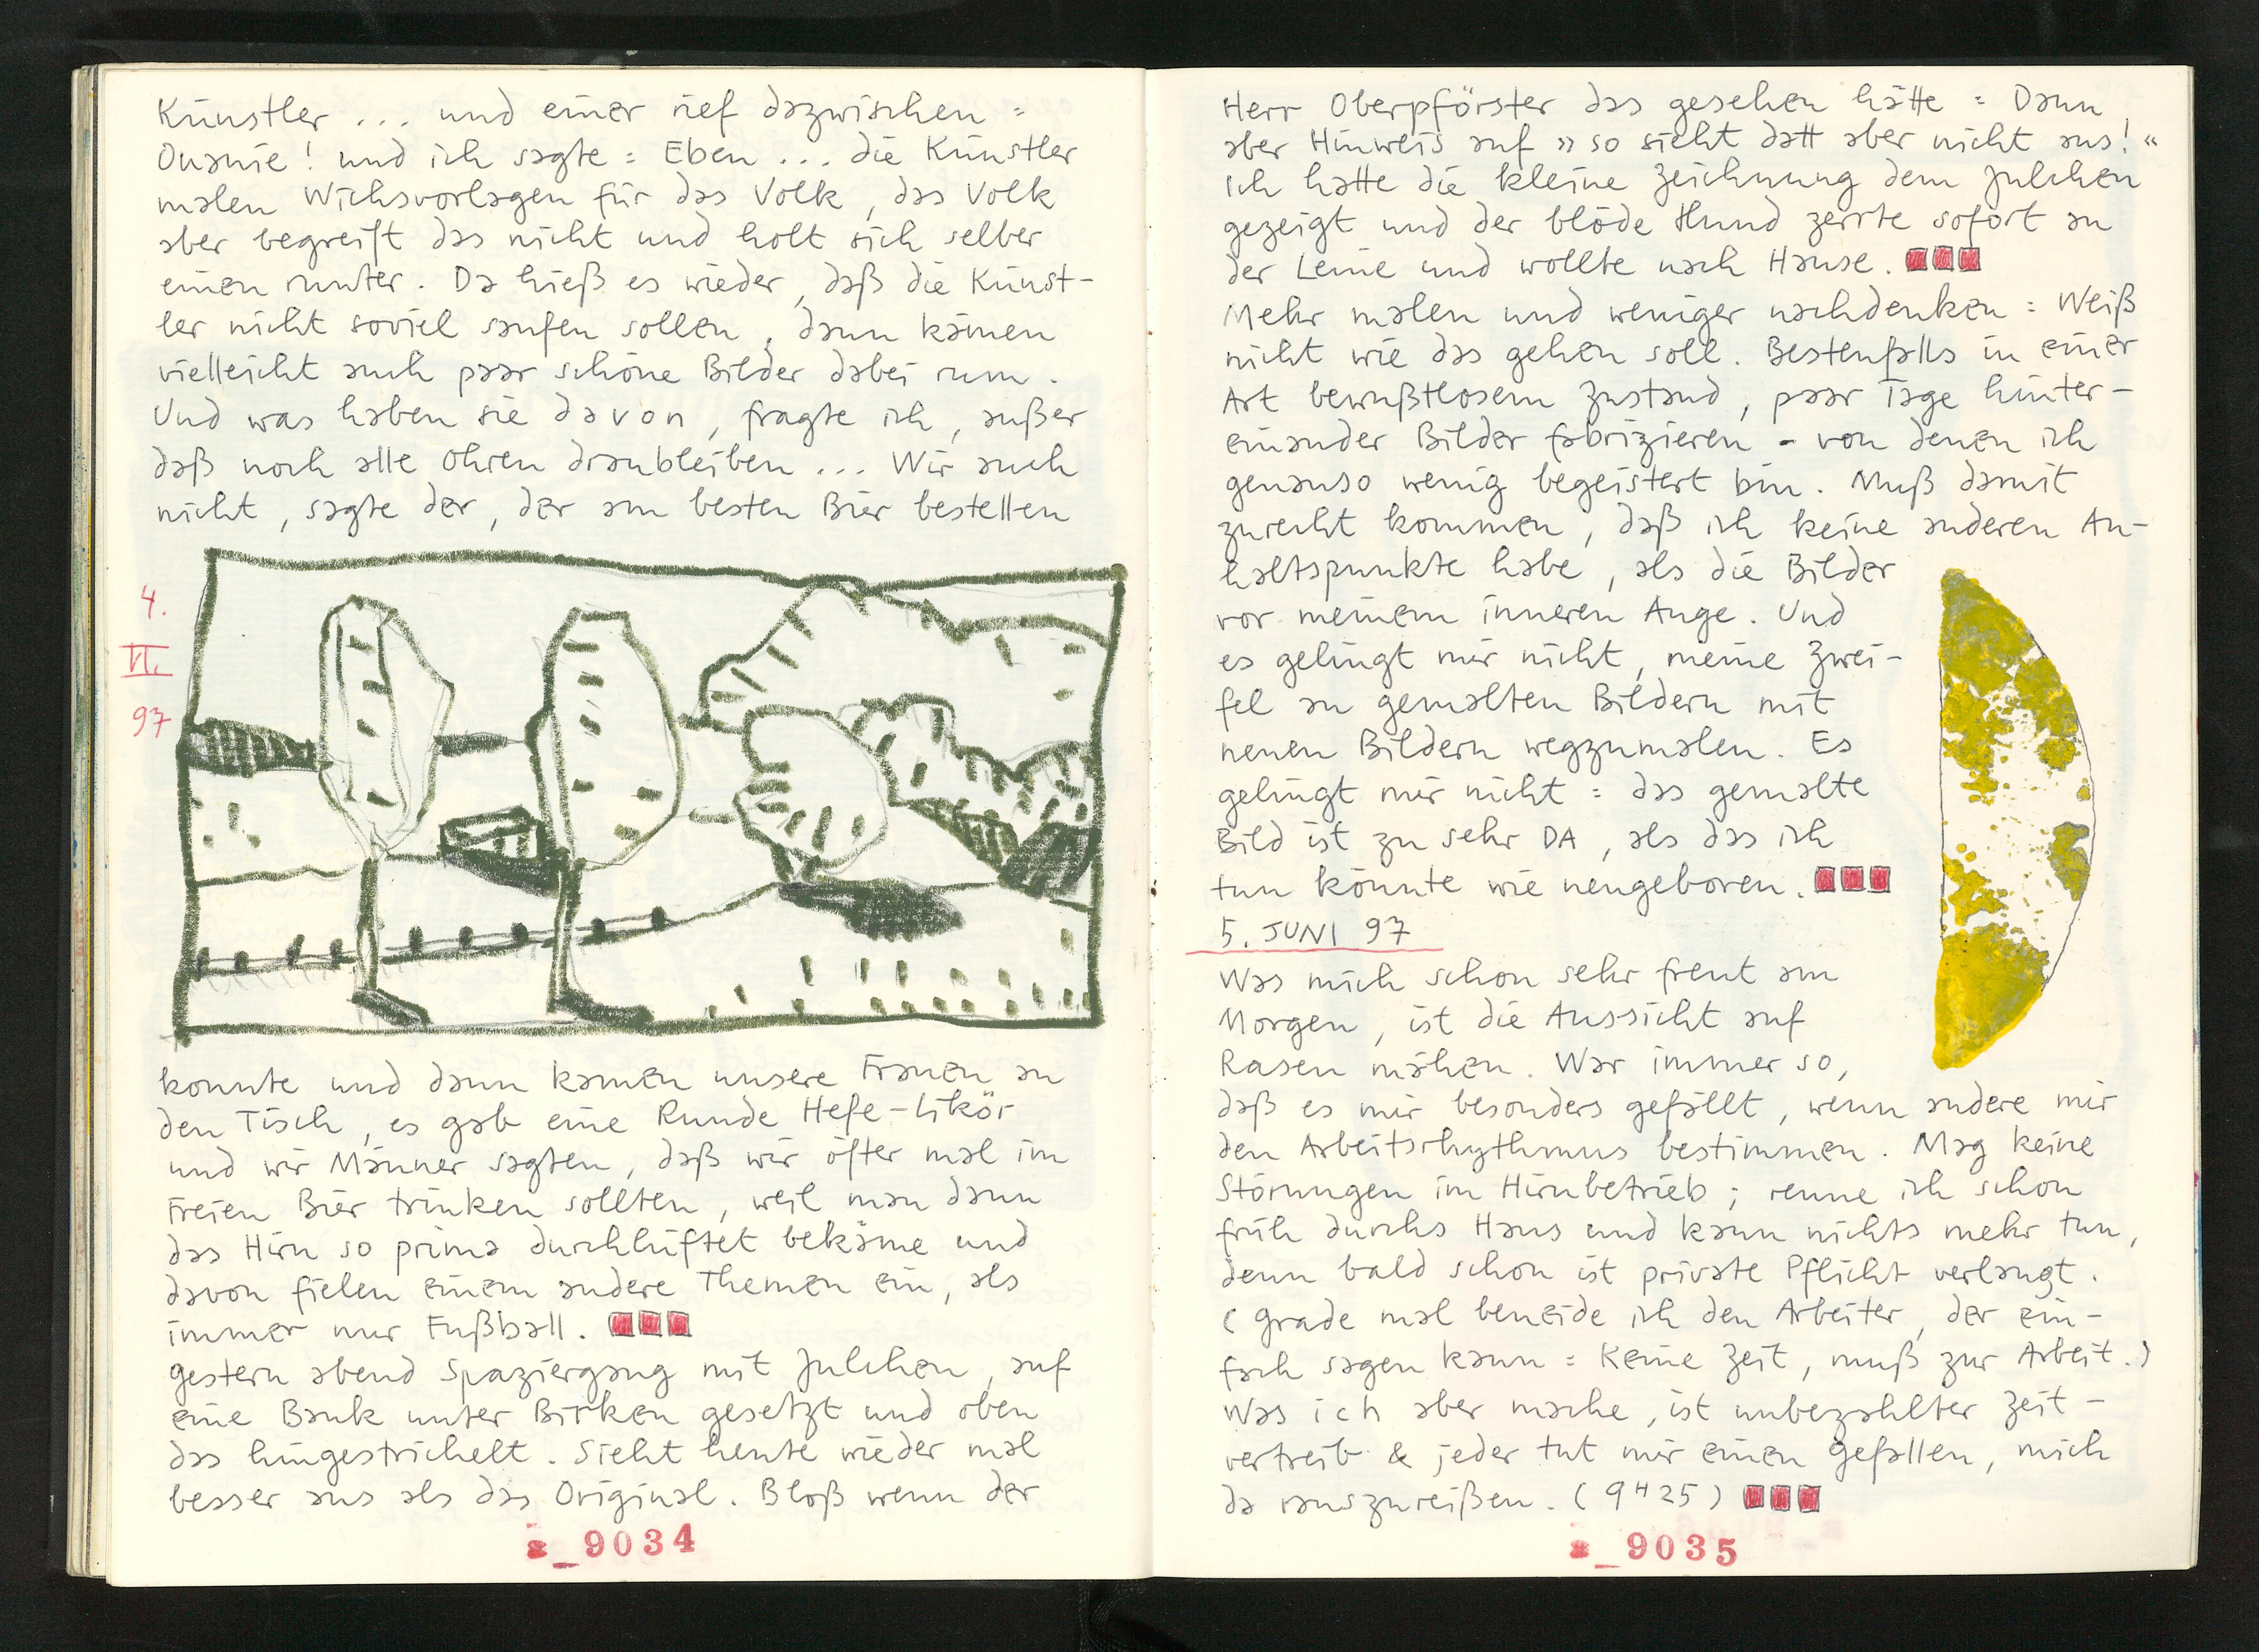 Künstler ... und einer rief dazwischen =
Onanie! und ich sagte = Eben ... die Künstler
malen Wichsvorlagen für das Volk, das Volk
aber begreift das nicht und holt sich selber
einen runter. Da hieß es wieder, daß die Künst-
ler nicht soviel saufen sollen, dann kämen
vielleicht auch paar schöne Bilder dabei rum.
Und was haben sie davon, fragte ich, außer
daß noch alle Ohren dranbleiben ... Wir auch
nicht, sagte der, der am besten Bier bestellen
4.
VI.
97
konnte und dann kamen unsere Frauen an
den Tisch, es gab eine Runde Hefe-Likör
und wir Männer sagten, daß wir öfter mal im
Freien Bier trinken sollten, weil man dann
das Hirn so prima durchlüftet bekäme und
davon fielen einem andere Themen ein, als
immer nur Fußball.
gestern abend Spaziergang mit Julchen, auf
eine Bank unter Birken gesetzt und oben
das hingestrichelt. Sieht heute wieder mal
besser aus als das Original. Bloß wenn der
a_9034
Herr Oberpförster das gesehen hätte = Dann
aber Hinweis auf » so sieht datt aber nicht aus! «
Ich hatte die kleine Zeichnung dem Julchen
gezeigt und der blöde Hund zerrte sofort an
der Leine und wollte nach Hause.
Mehr malen und weniger nachdenken = Weiß
nicht wie das gehen soll. Bestenfalls in einer
Art bewußtlosem Zustand, paar Tage hinter-
einander Bilder fabrizieren - von denen ich
genauso wenig begeistert bin. Muß damit
zurecht kommen, daß ich keine anderen An-
haltspunkte habe, als die Bilder
vor meinem inneren Auge. Und
es gelingt mir nicht, meine Zwei-
fel an gemalten Bildern mit
neuen Bildern wegzumalen. Es
gelingt mir nicht = das gemalte
Bild ist zu sehr DA, als das ich
tun könnte wie neugeboren.
5. JUNI 97
Was mich schon sehr freut am
Morgen, ist die Aussicht auf
Rasen mähen. War immer so,
daß es mir besonders gefällt, wenn andere mir
den Arbeitsrhythmus bestimmen. Mag keine
Störungen im Hirnbetrieb; renne ich schon
früh durchs Haus und kann nichts mehr tun,
denn bald schon ist private Pflicht verlangt.
( Grade mal beneide ich den Arbeiter, der ein-
fach sagen kann = Keine Zeit, muß zur Arbeit.)
Was ich aber mache, ist unbezahlter Zeit-
vertreib & jeder tut mir einen Gefallen, mich
da rauszureißen. ( 9 H 25 )
a_9035